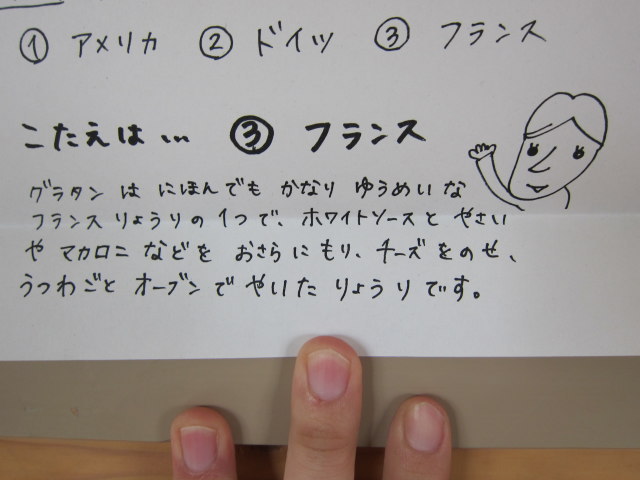 ① アメリカ ② ドイツ ③ フランス
こたえは… ③ フランス
グラタン は にほんでも かなり ゆうめいな
フランスりょうりの1つで、ホワイトソースと やさい
や マカロニ などを おさらにもり、チーズをのせ、
うつわごと オーブンで やいた りょうりです。